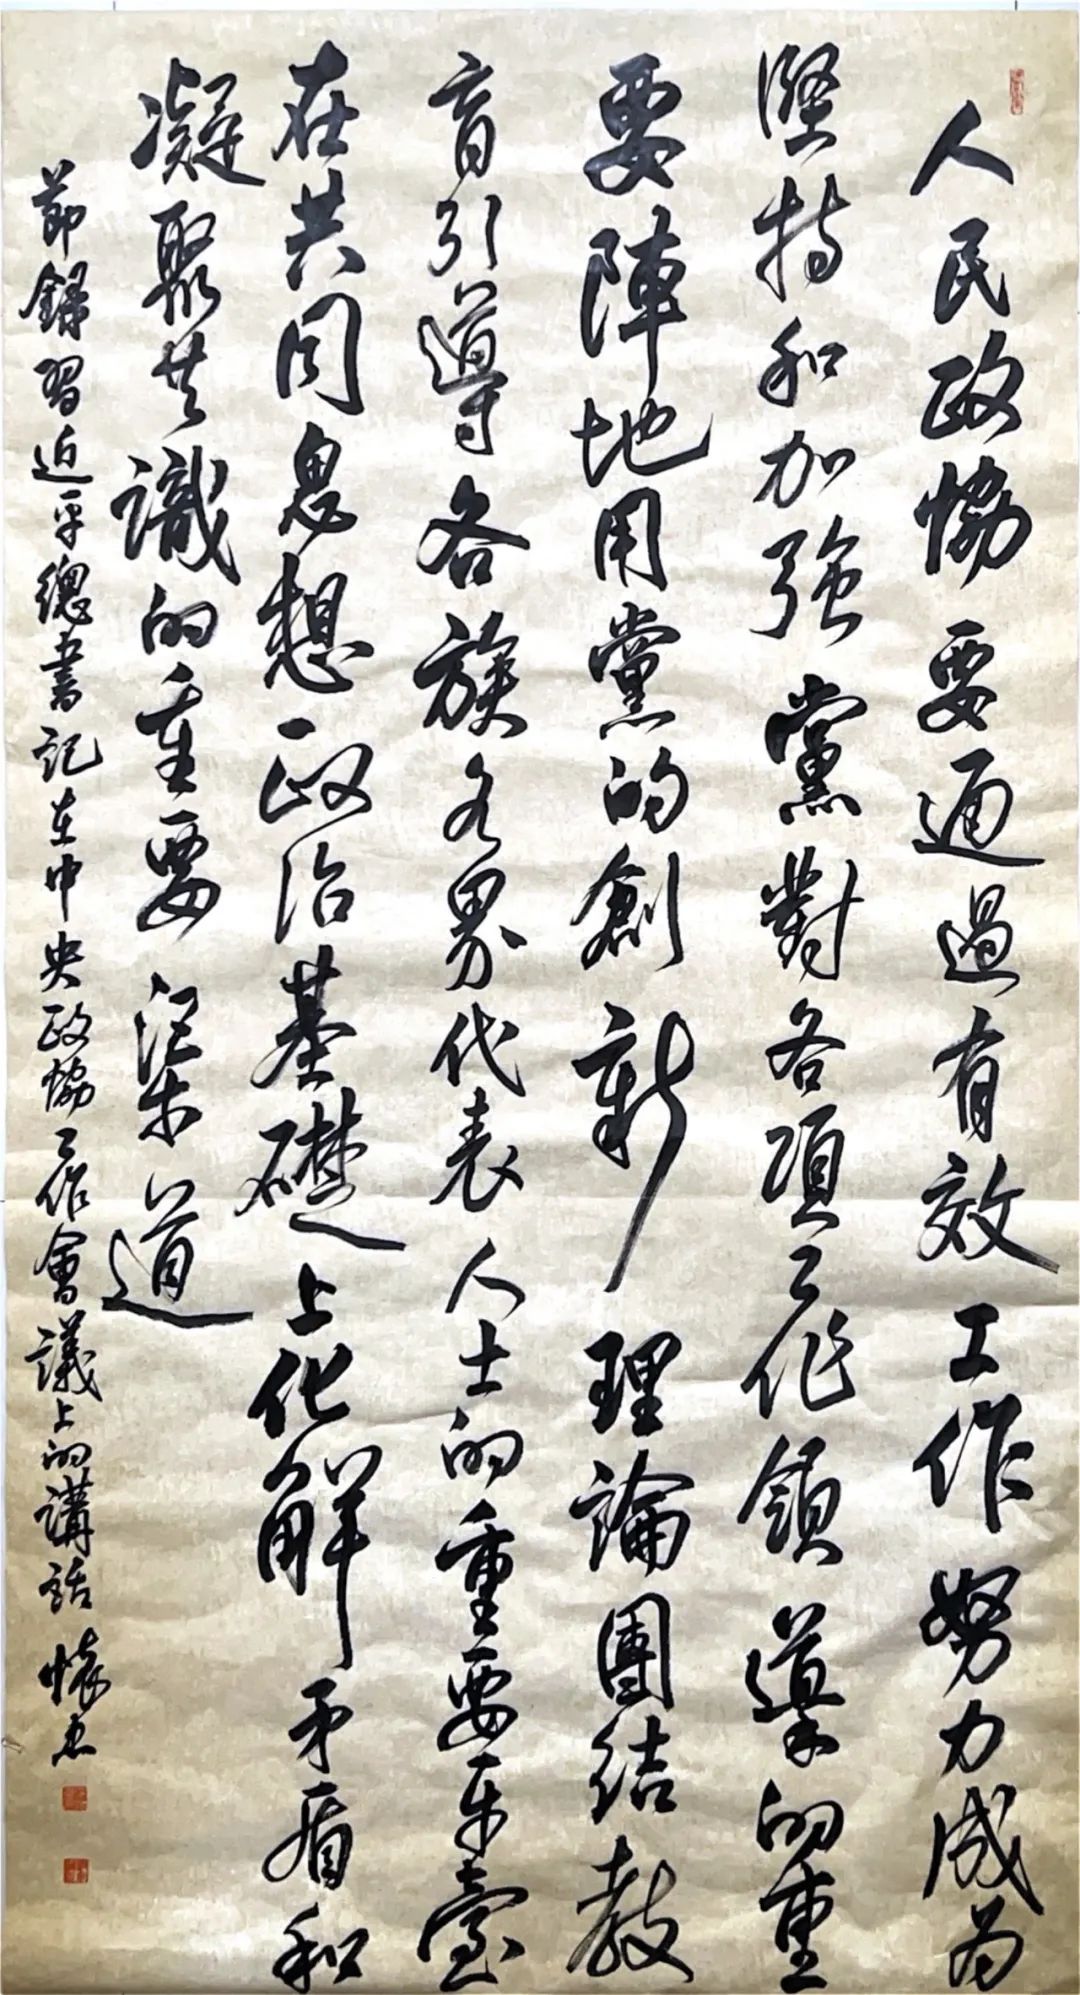 人民政協要通過有效工作努力成為
堅持和加強黨對各項工作領導的重
要陣地用黨的創新理論團結教
育引導各族各界代表人士的重要平臺
在共同思想政治基礎上化解矛盾和
凝聚共識的重要渠道
節錄習近平總書記在中央政協工作會議上的講話 懷忠